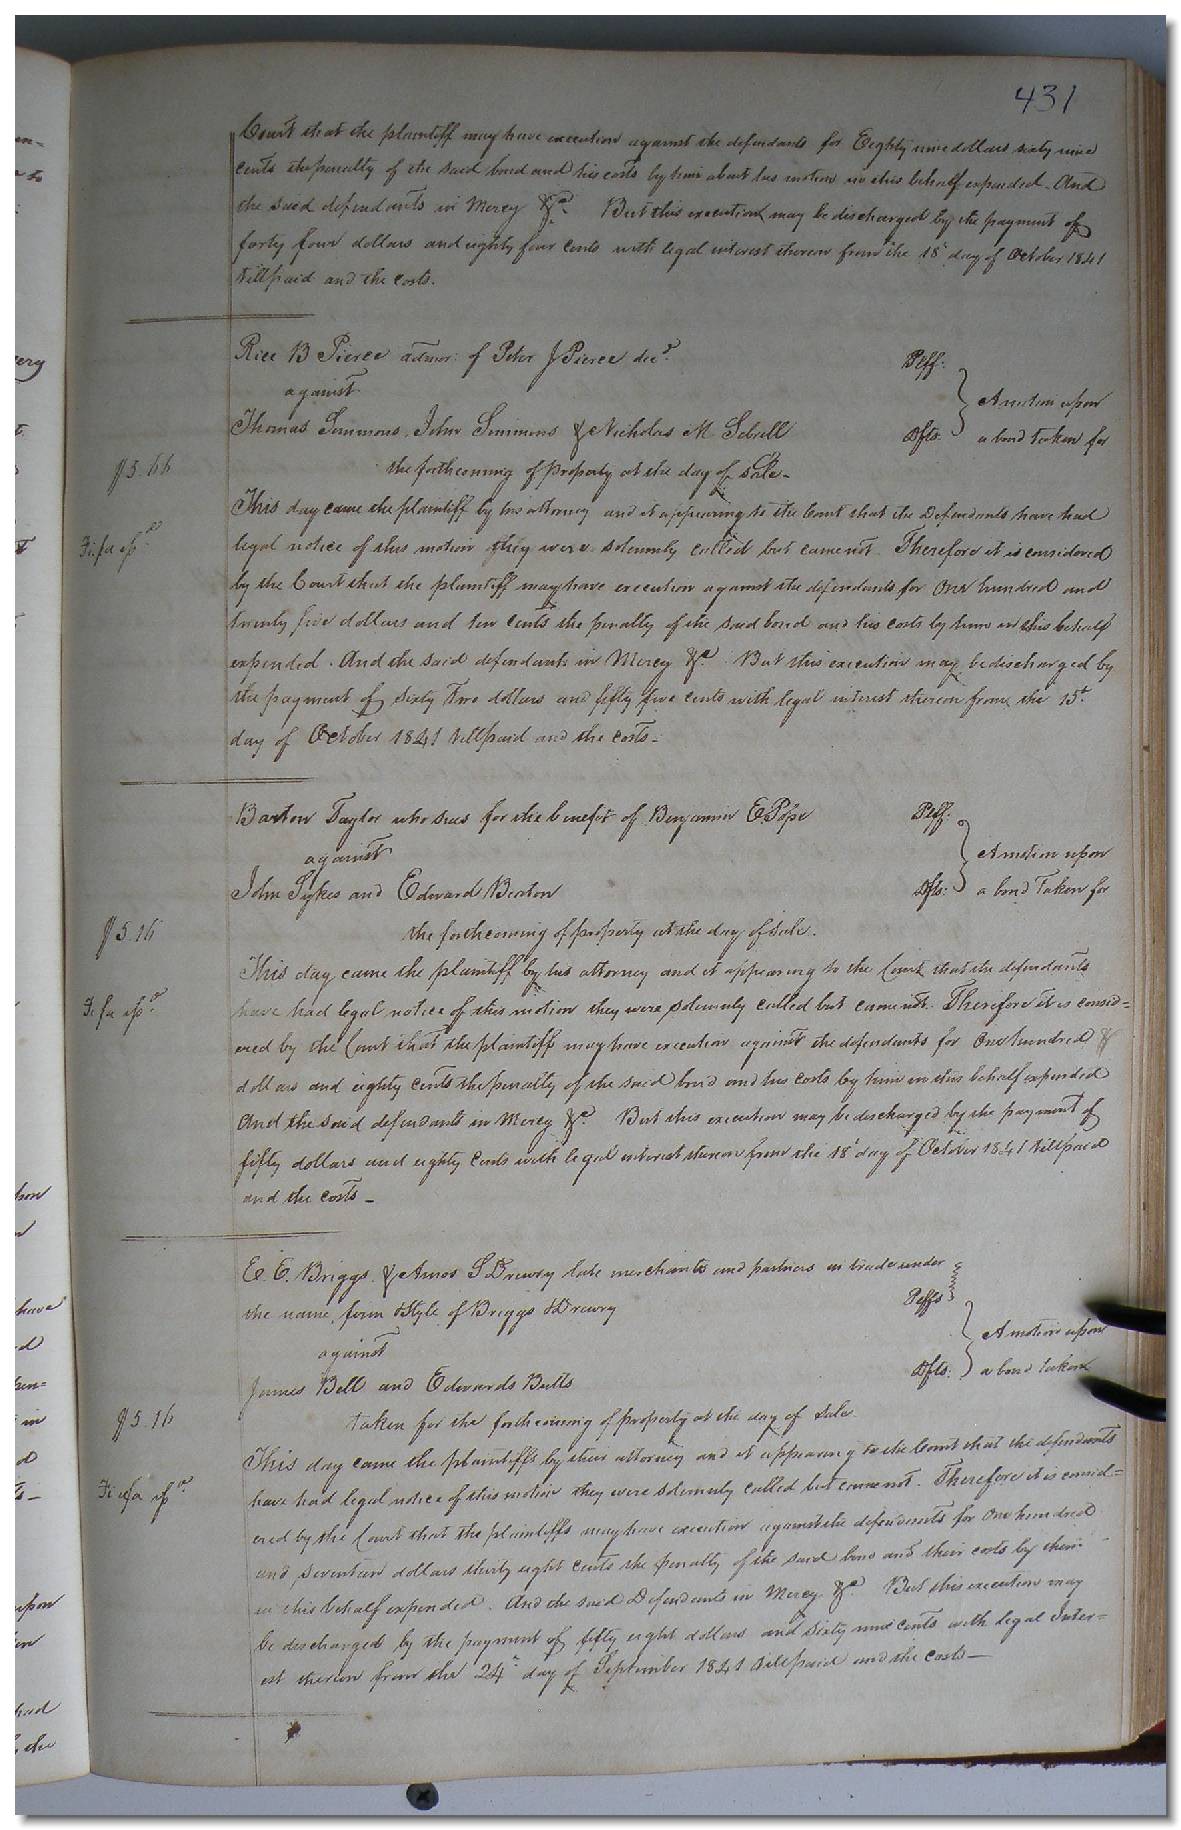 431
Court that the plaintiff may have execution against the defendants for Eighty nine dollars sixty nine
cents the penalty of the said bond and his costs by him about his motion in this behalf expended. And
the said defendants in Mercy &c. But this execution may be discharged by the payment of
forty four dollars and eighty four cents with legal interest thereon from the 18th day of October 1841
till paid and the costs.
Rice B Pierce admor: of Peter J Pierce decd. Plff:
against
Thomas Simmons, John Simmons & Nicholas M Sebrell Dfts:
A motion upon
a bond taken for
the forthcoming of property at the day of sale -
$5.66
This day came the plaintiff by his attorney and it appearing to the Court that the Defendants have had
Fi fa
legal notice of this motion they were solemnly called but came not. Therefore it is considered
by the Court that the plaintiff may have execution against the defendants for One hundred and
twenty five dollars and ten cents the penalty of the said bond and his costs by him in this behalf
expended. And the said defendants in Mercy &c. But this execution may be discharged by
the payment of Sixty Two dollars and fifty five cents with legal interest thereon from the 15t
day of October 1841 till paid and the costs -
Barton Taylor who sues for the benefit of Benjamin E. Pope Plff:
against
John Sykes and Edward Beaton Dfts:
A motion upon
a bond Taken for
the forthcoming of property at the day of sale.
$5.16
This day came the plaintiff by his attorney and it appearing to the Court that the defendants
Fi fa
have had legal notice of this motion they were solemnly called but came not. Therefore it is consid=
ered by the Court that the plaintiff may have execution against the defendants for One hundred &
dollars and eighty cents the penalty of the said bond and his costs by him in this behalf expended
And the said defendants in Mercy &c. But this execution may be discharged by the payment of
fifty dollars and eighty cents with legal interest thereon from the 18t day of October 1841 till paid
and the costs -
E. E. Briggs & Amos S Drewry late merchants and partners in trade under
the name, firm & Style of Briggs & Drewry Plffs
against
James Bell and Edwards Butts Dfts:
A motion upon
a bond taken
taken for the forthcoming of property at the day of sale
$5.16
This day came the plaintiffs by their attorney and it appearing to the Court that the defendants
Fi fa
have had legal notice of this motion they were solemnly called but came not. Therefore it is consid=
ered by the Court that the plaintiffs may have execution against the defendants for One hundred
and seventeen dollars thirty eight cents the penalty of the said bond and their costs by them
in this behalf expended. And the said Defendants in Mercy &c. But this execution may
be discharged by the payment of fifty eight dollars and sixty nine cents with legal Inter=
est thereon from the 24th day of September 1841 till paid and the costs -